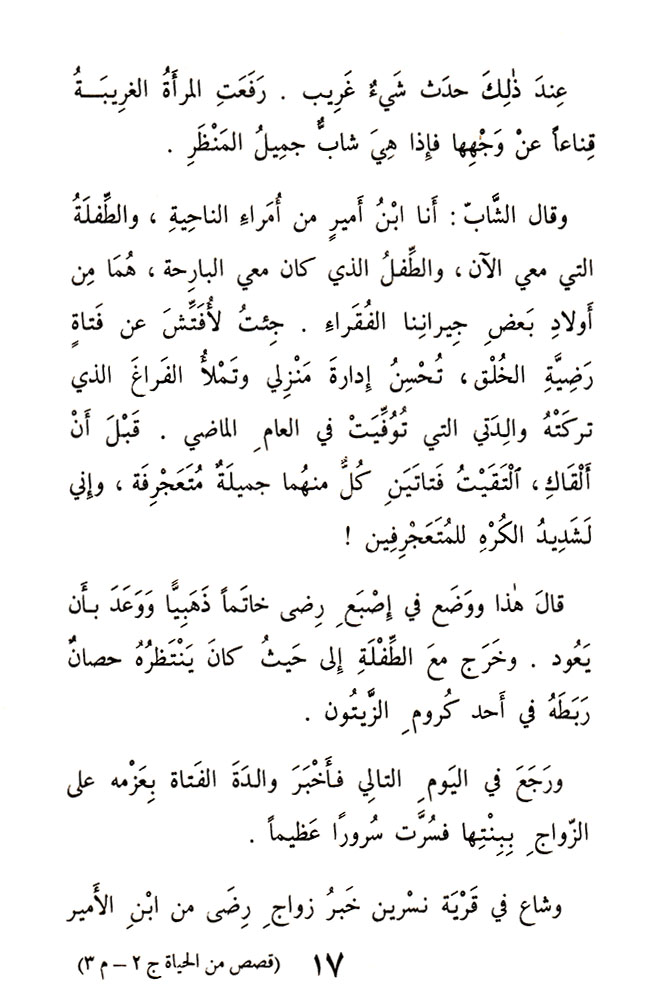 عِندَ ذٰلِكَ حدَث شَيءٌ غَرِيب . رَفَعَتِ المرأَةُ الغرِيبَــةُ
قِناعاً عنْ وَجْهِها فإذا هِيَ شابٌّ جميلُ المَنْظَرِ .
وقال الشَّابّ : أَنا ابْنُ أَميرٍ من أُمَراءِ الناحِيةِ ، والطِّفلَةُ
التي معي الآن ، والطِّفلُ الذي كان معي البارِحة ، هُمَا مِن
أَولادِ بَعضِ جِيرانِنا الفُقَراءِ . جِئتُ لأُفَتِّشَ عن فَتاةٍ
رَضِيَّةِ الخُلْق ، تُحْسِنُ إدارةَ مَنْزِلي وتَمْلأُ الفَراغَ الذي
تركَتْهُ والِدَتي التي تُوُفِّيَتْ في العام الماضي . قَبْلَ أَنْ
أَلْقَاكِ ، ٱلْتَقَيْتُ فَتاتَيَنِ كُلٌّ منهُما جميلَةٌ مُتَعَجْرِفَة ، وإني
لَشَدِيدُ الكُرْهِ للمُتَعَجْرِفِين !
قالَ هٰذا ووَضَع في إصْبَعِ رِضى خاتَماً ذَهَبِيًّا وَوَعَدَ بـأَن
يَعُود . وخَرَج معَ الطِّفْلَةِ إلى حَيثُ كانَ يَنْتَظرُهُ حصانٌ
رَبَطَهُ في أَحد كُرومِ الزَّيتُون .
ورَجَعَ في اليَومِ التالِي فـأَخْبَرَ والـدَةَ الفَتاة بِعَزْمه على
الزّواجِ بِبِنْتِها فسُرَّت سُرورًا عَظيماً .
وشاع في قَرْيَة نسْرين خَبرُ زواجِ رِضَى من ابْنِ الأَمير
١٧ (قصص من الحياة ج ٢ – م ٣)